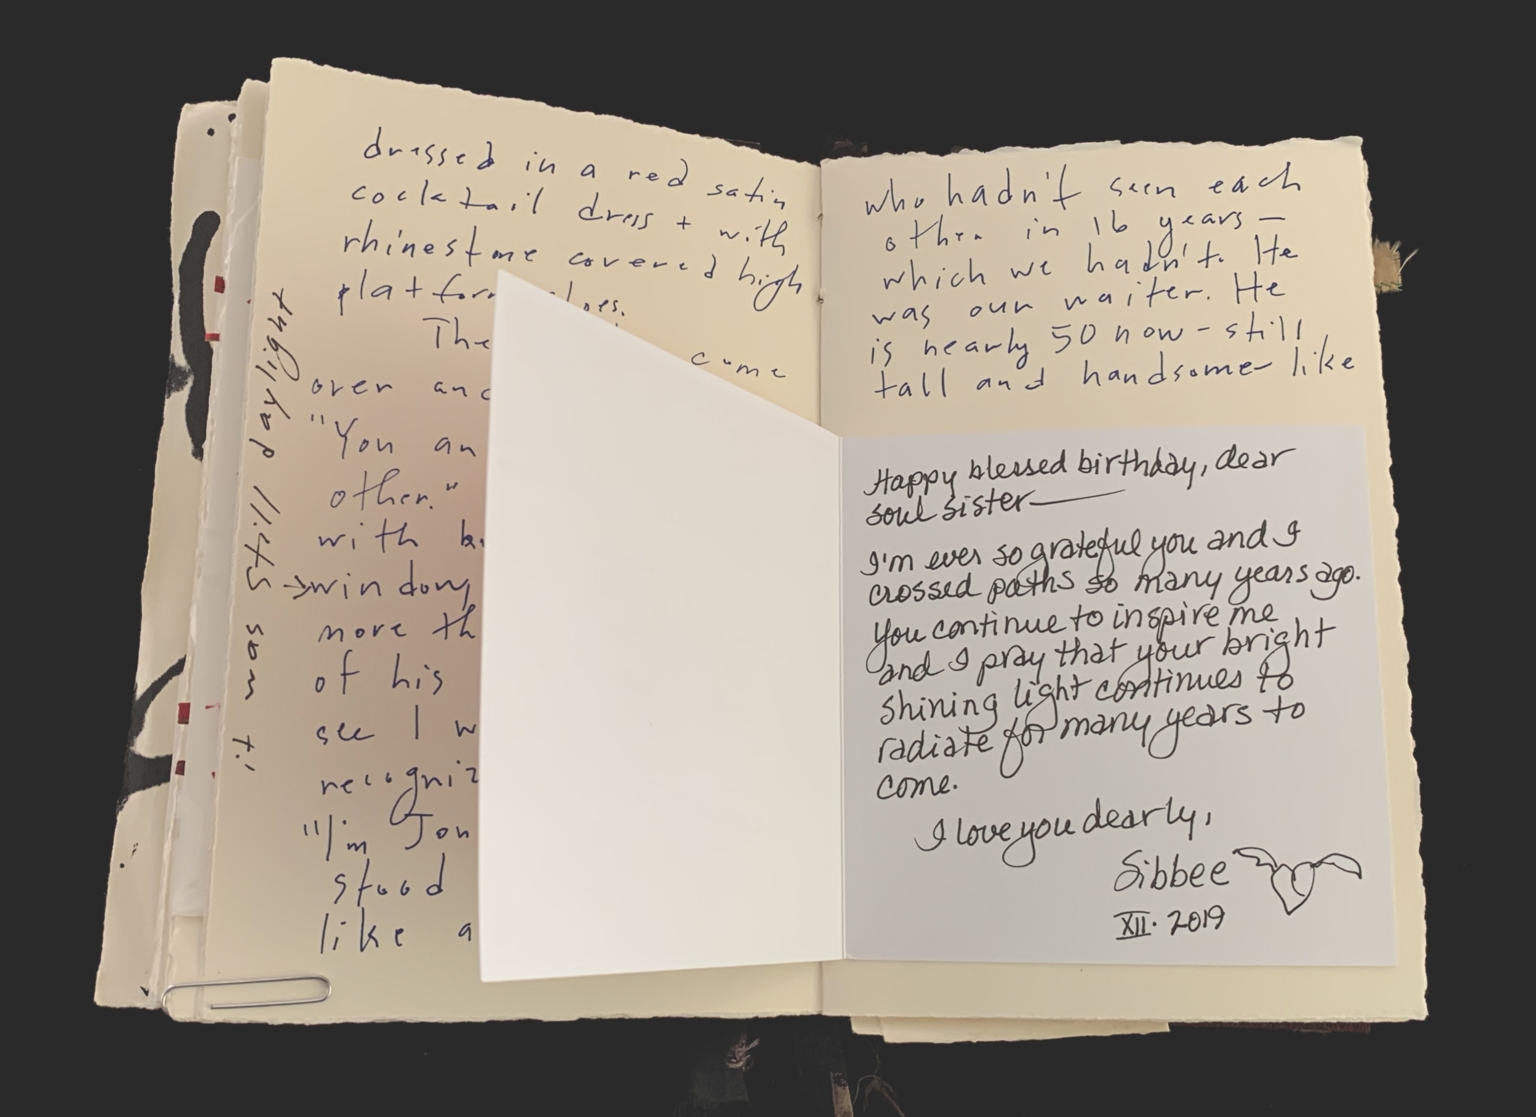 dressed in a red satin
cocktail dress + with
rhinestone covered high
platform shoes.
The
come
over and
"You an
other."
with b
→window
more th
of his
see I w
recogniz
"I'm Jon
stood
like a
Still daylight
seen it!
who hadn't seen each
other in 16 years —
which we hadn't. He
was our waiter. He
is nearly 50 now - still
tall and handsome - like
Happy blessed birthday, dear
soul sister—
I'm ever so grateful you and I
crossed paths so many years ago.
You continue to inspire me
and I pray that your bright
shining light continues to
radiate for many years to
come.
I love you dearly,
Sibbee
XII. 2019